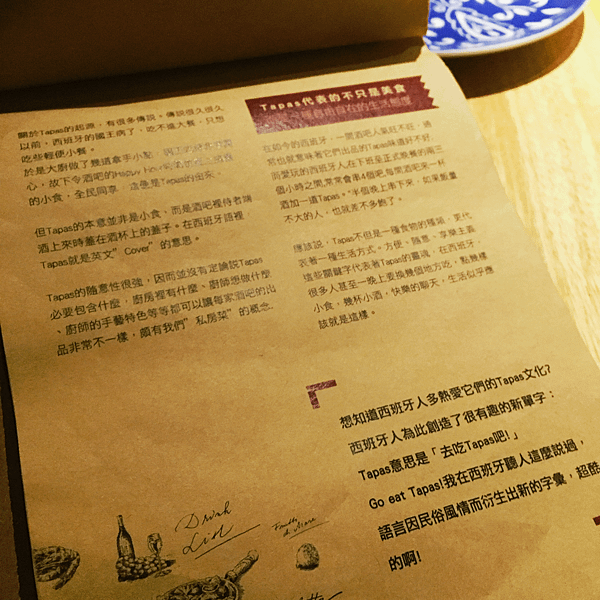 關於Tapas的起源，有很多傳說。傳說很久很久
以前，西班牙的國王病了，吃不進大餐，只想
吃些輕便小餐。
於是大廚做了幾道拿手小點，
心，故下令酒吧的Happy Hour
的小食，全民同享，這便是Tapas的由來。
但Tapas的本意並非是小食，而是酒吧裡侍者端
酒上來時蓋在酒杯上的蓋子。在西班牙語裡，
Tapas就是英文"Cover"的意思。
Tapas的隨意性很強，因而並沒有定論說Tapas
必要包含什麼，廚房裡有什麼、廚師想做什麼
、廚師的手藝特色等等都可以讓每家酒吧的出
品非常不一樣，頗有我們"私房菜"的概念。
Tapas代表的不只是美食
自由自在的生活態度
在如今的西班牙，一間酒吧人氣旺不旺，通
常也就意味著它們出品的Tapas味道好不好。
而愛玩的西班牙人在下班至正式晚餐的兩三
個小時之間，常常會串4個吧，每間酒吧來一杯
酒加一道Tapas。"半個晚上串下來，如果飯量
不大的人，也就差不多飽了。
應該說，Tapas不但是一種食物的種類，更代
表著一種生活方式。方便、隨意、享樂主義
這些關鍵字代表著Tapas的靈魂，在西班牙，
很多人甚至一晚上要換幾個地方吃，點幾樣
小食，幾杯小酒，快樂的聊天，生活似乎應
該就是這樣。
想知道西班牙人多熱愛它們的Tapas文化?
西班牙人為此創造了很有趣的新單字：
Tapas意思是「去吃Tapas吧!」
Go eat Tapas!我在西班牙聽人這麼說過，
語言因民俗風情而衍生出新的字彙，超酷
的啊!
Drink
List